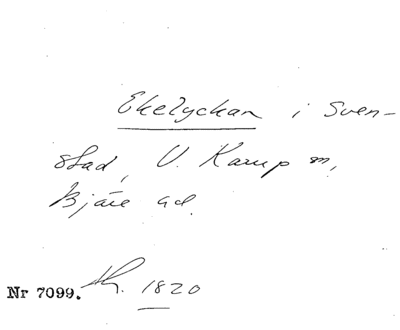 Ekelyckan i Sven-
stad, V. Karup sn,
Bjäre hd.
Nr 7099. Th. 1820